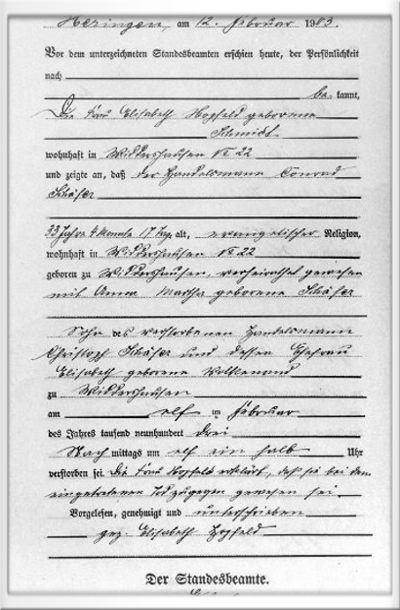 Heringen, am 12. Februar 1903.
Vor dem unterzeichneten Standesbeamten erschien heute, der Persönlichkeit
nach
be kannt,
Die Frau Elisabeth Hoßfeld geborene
Schmidt
wohnhaft in Widdershausen № 22
und zeigte an, daß der Handelsmann Conrad
Schäfer
33 Jahre 4 Monate 17 Tag alt, evangelischer Religion,
wohnhaft in Widdershausen № 22
geboren zu Widdershausen, verheirathet gewesen
mit Anna Martha geborene Schäfer
Sohn des verstorbenen Handelsmann
Christoph Schäfer und dessen Ehefrau
Elisabeth geborene Volkenand
zu Widdershausen
am elf ten Februar
des Jahres tausend neunhundert drei
Nach mittags um elf ein halb Uhr
verstorben sei. Die Frau Hoßfeld erklärt, daß sie bei dem
eingetretenen Tod zugegen gewesen sei.
Vorgelesen, genehmigt und unterschrieben
gez. Elisabeth Hoßfeld
Der Standesbeamte.